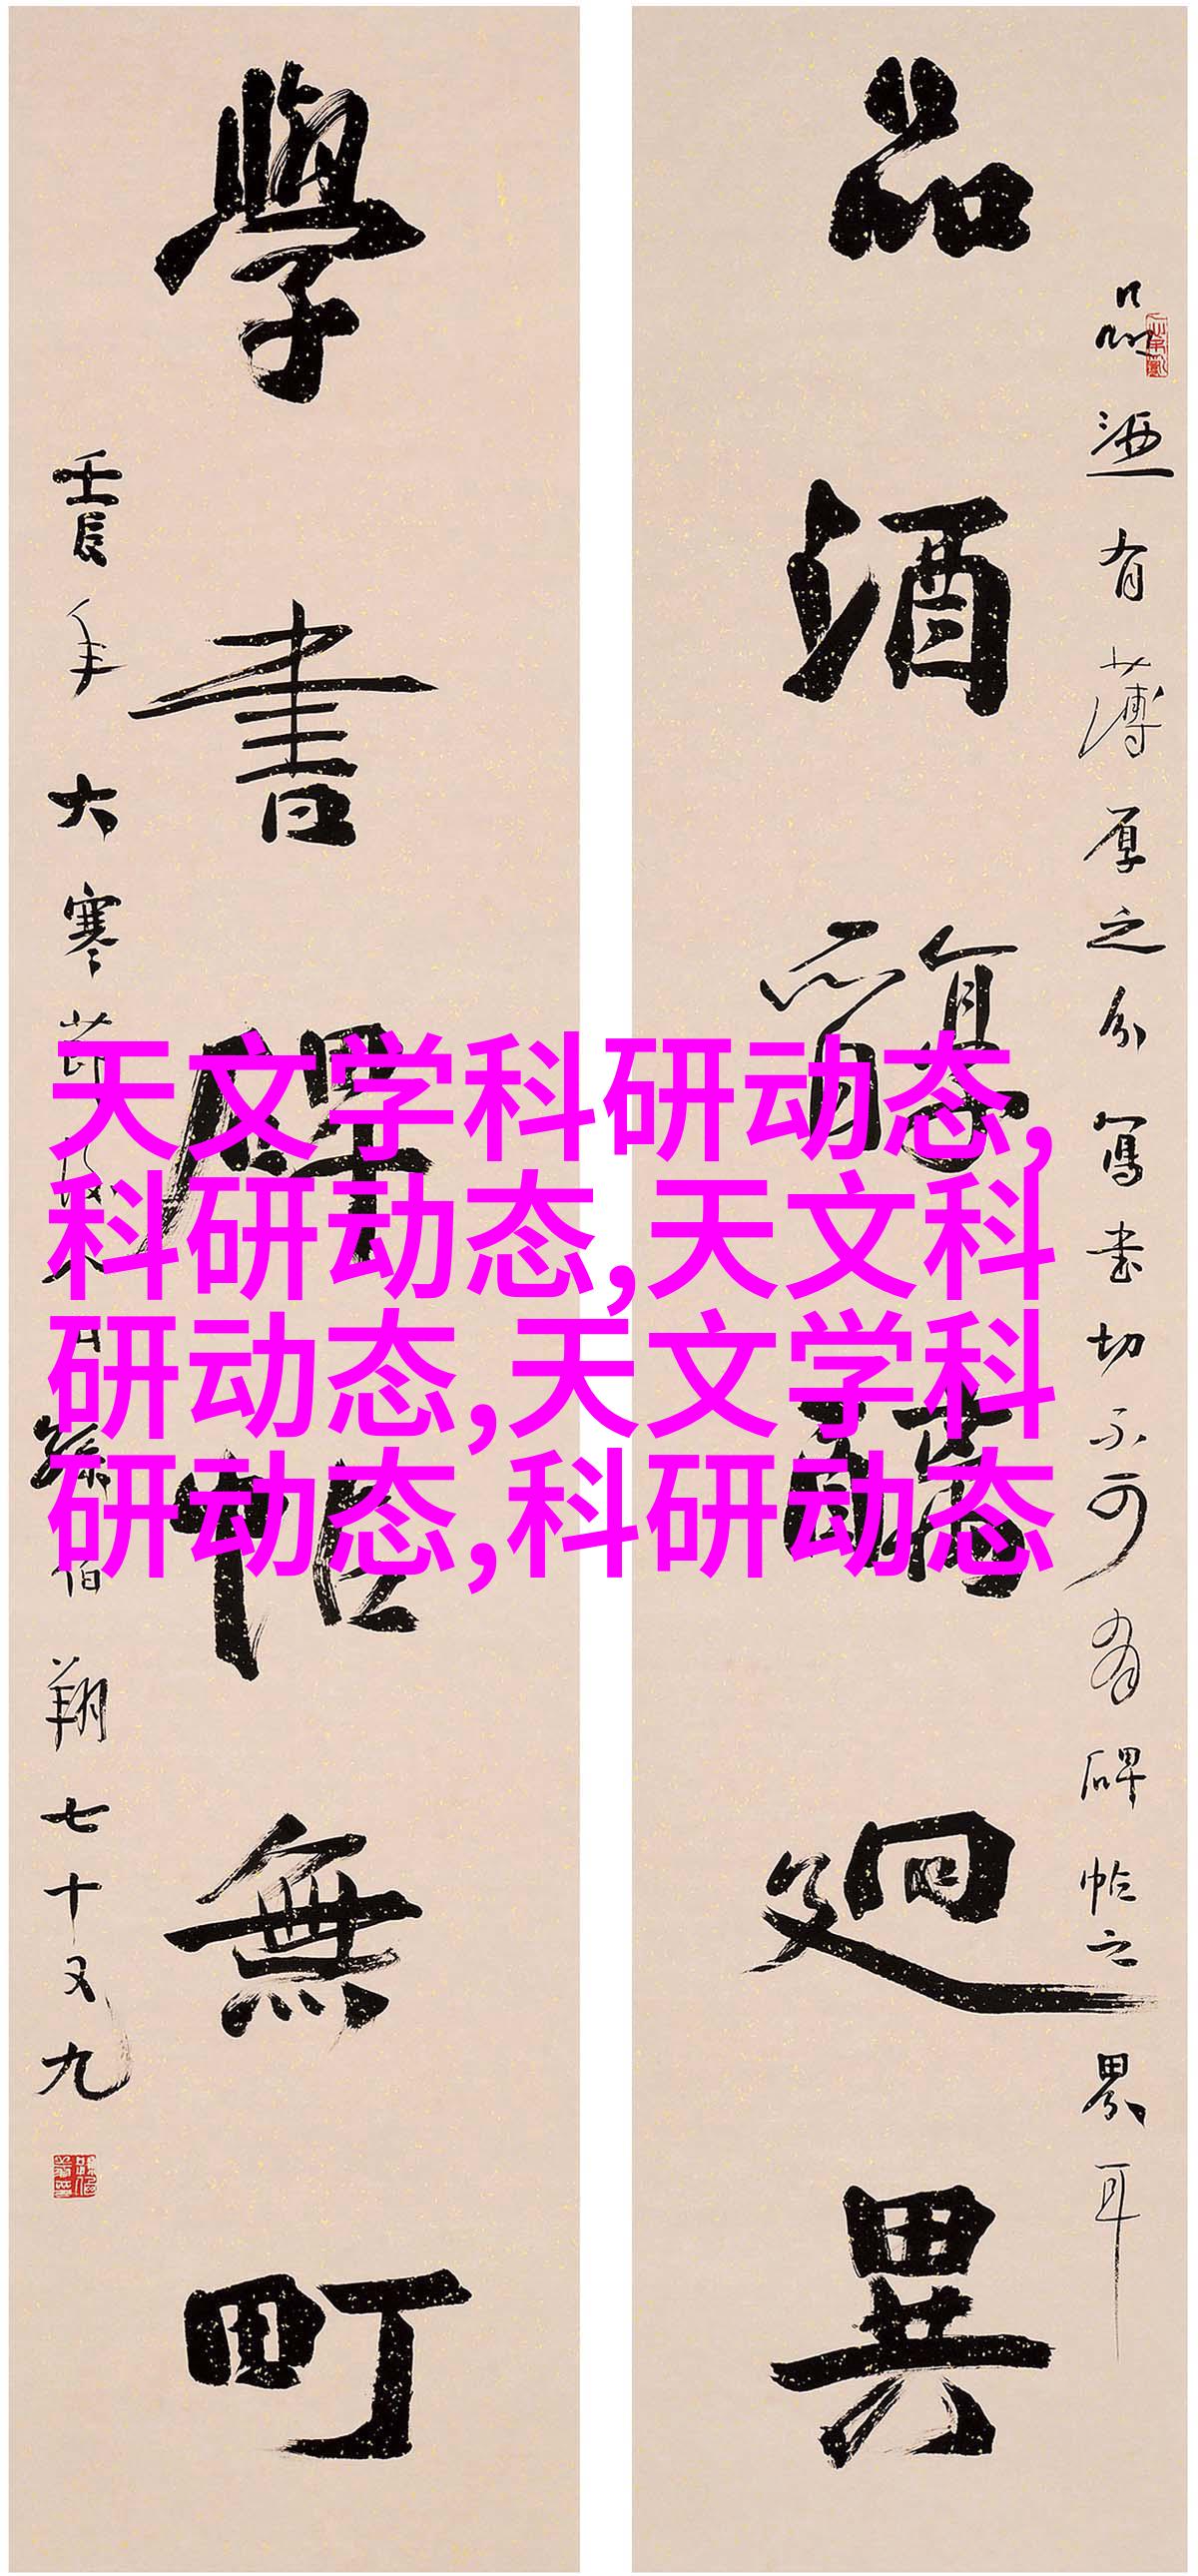 品酒迥異
品酒有薄厚之分寫書切不可有碑帖之界耳
學書碑帖無町
壬辰年大寒節日孫伯翔七十又九
天文学科研动态,
科研动态,天文科
研动态,天文学科
研动态,科研动态